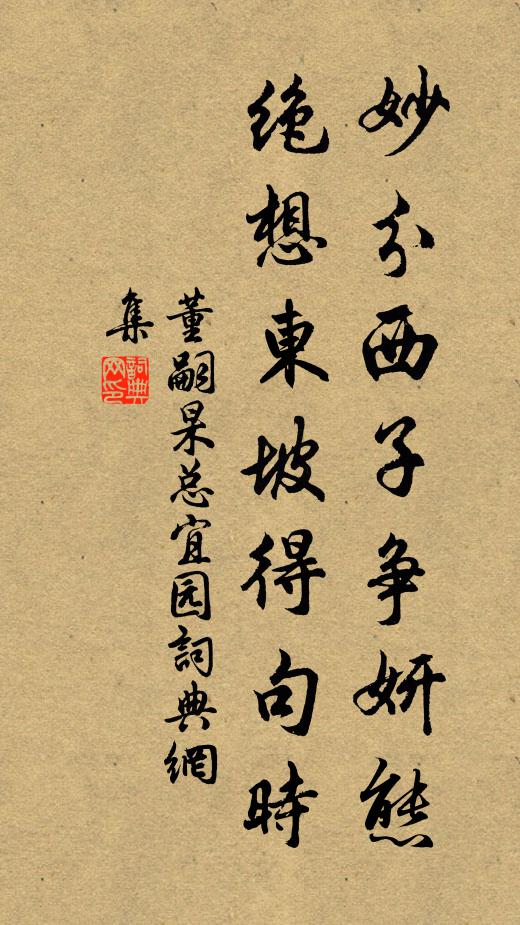 妙分西子争妍態
绝想東坡得句時
董嗣杲总宜园詞典網
集
詞典
网印